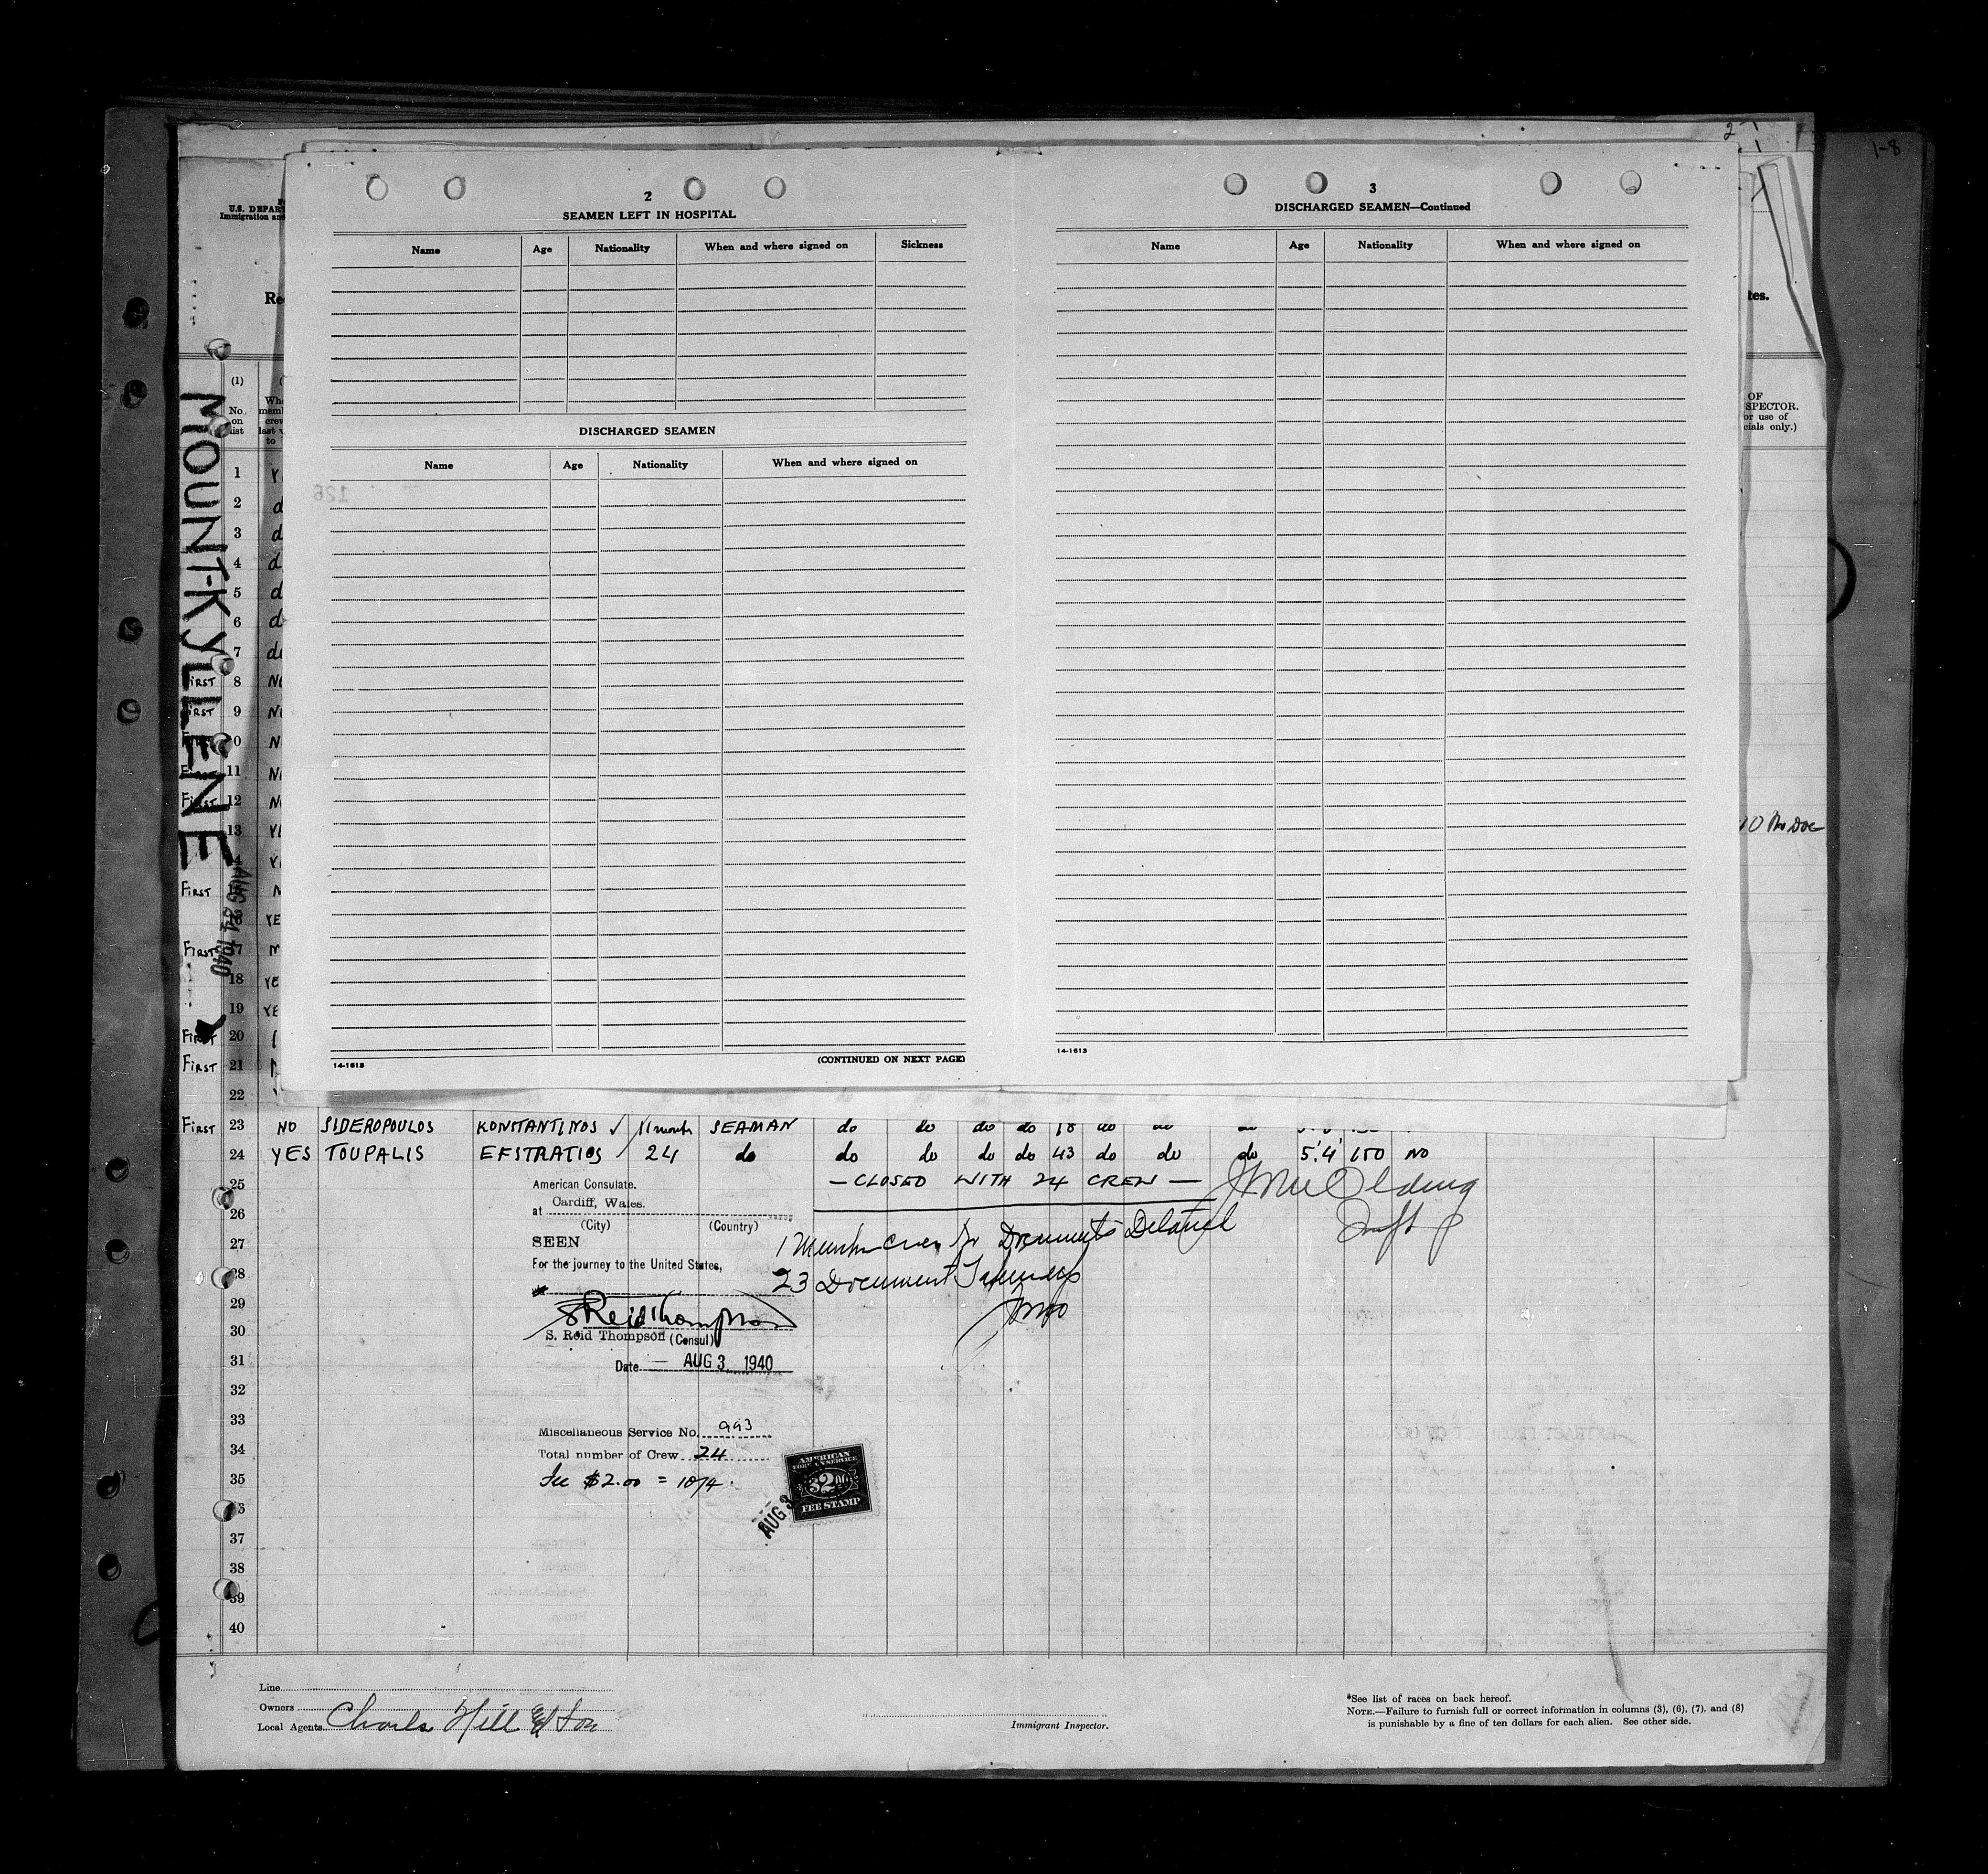 2
1-8
U.S. DEPAR
Immigration and
Re
tes.
2
SEAMEN LEFT IN HOSPITAL
Name Age Nationality When and where signed on Sickness
DISCHARGED SEAMEN
Name Age Nationality When and where signed on
126
(CONTINUED ON NEXT PAGE)
14-1613
3
DISCHARGED SEAMEN—Continued
Name Age Nationality When and where signed on
14-1613
OF
SPECTOR.
or use of
cials only.)
MOUNT-KYLLENE
AUG 24 1940
(1)
No.
on
list
1
2 d
3 d
4 d
5 d
6 d
7 do
First 8 No
First 9
10
First 11
First 12
13
14
First 15
16 YE
First 17
18 YE
19 YE
First 20
First 21
22
First 23 NO SIDEROPOULOS KONSTANTINOS ✓ 11 months SEAMAN do do do do 18 do do do
24 YES TOUPALIS EFSTRATIOS 24 do do do do do 43 do do do 5'.4' 150 NO
25 — CLOSED WITH 24 CREW —
26
27
28
29
30
31
32
33
34
35
37
38
39
40
American Consulate.
at Cardiff, Wales.
(City) (Country)
SEEN
For the journey to the United States,
S. Reid Thompson
S. Reid Thompson (Consul)
Date — AUG 3 1940
23 Document
Miscellaneous Service No. 993
Total number of Crew 24
Fee $2.00 = 10/4.
AMERICAN
FOREIGN SERVICE
$2.00
FEE STAMP
AUG 3
Line
Owners
Local Agents Charles Hill & Son
Immigrant Inspector.
*See list of races on back hereof.
NOTE.—Failure to furnish full or correct information in columns (3), (6), (7), and (8)
is punishable by a fine of ten dollars for each alien. See other side.